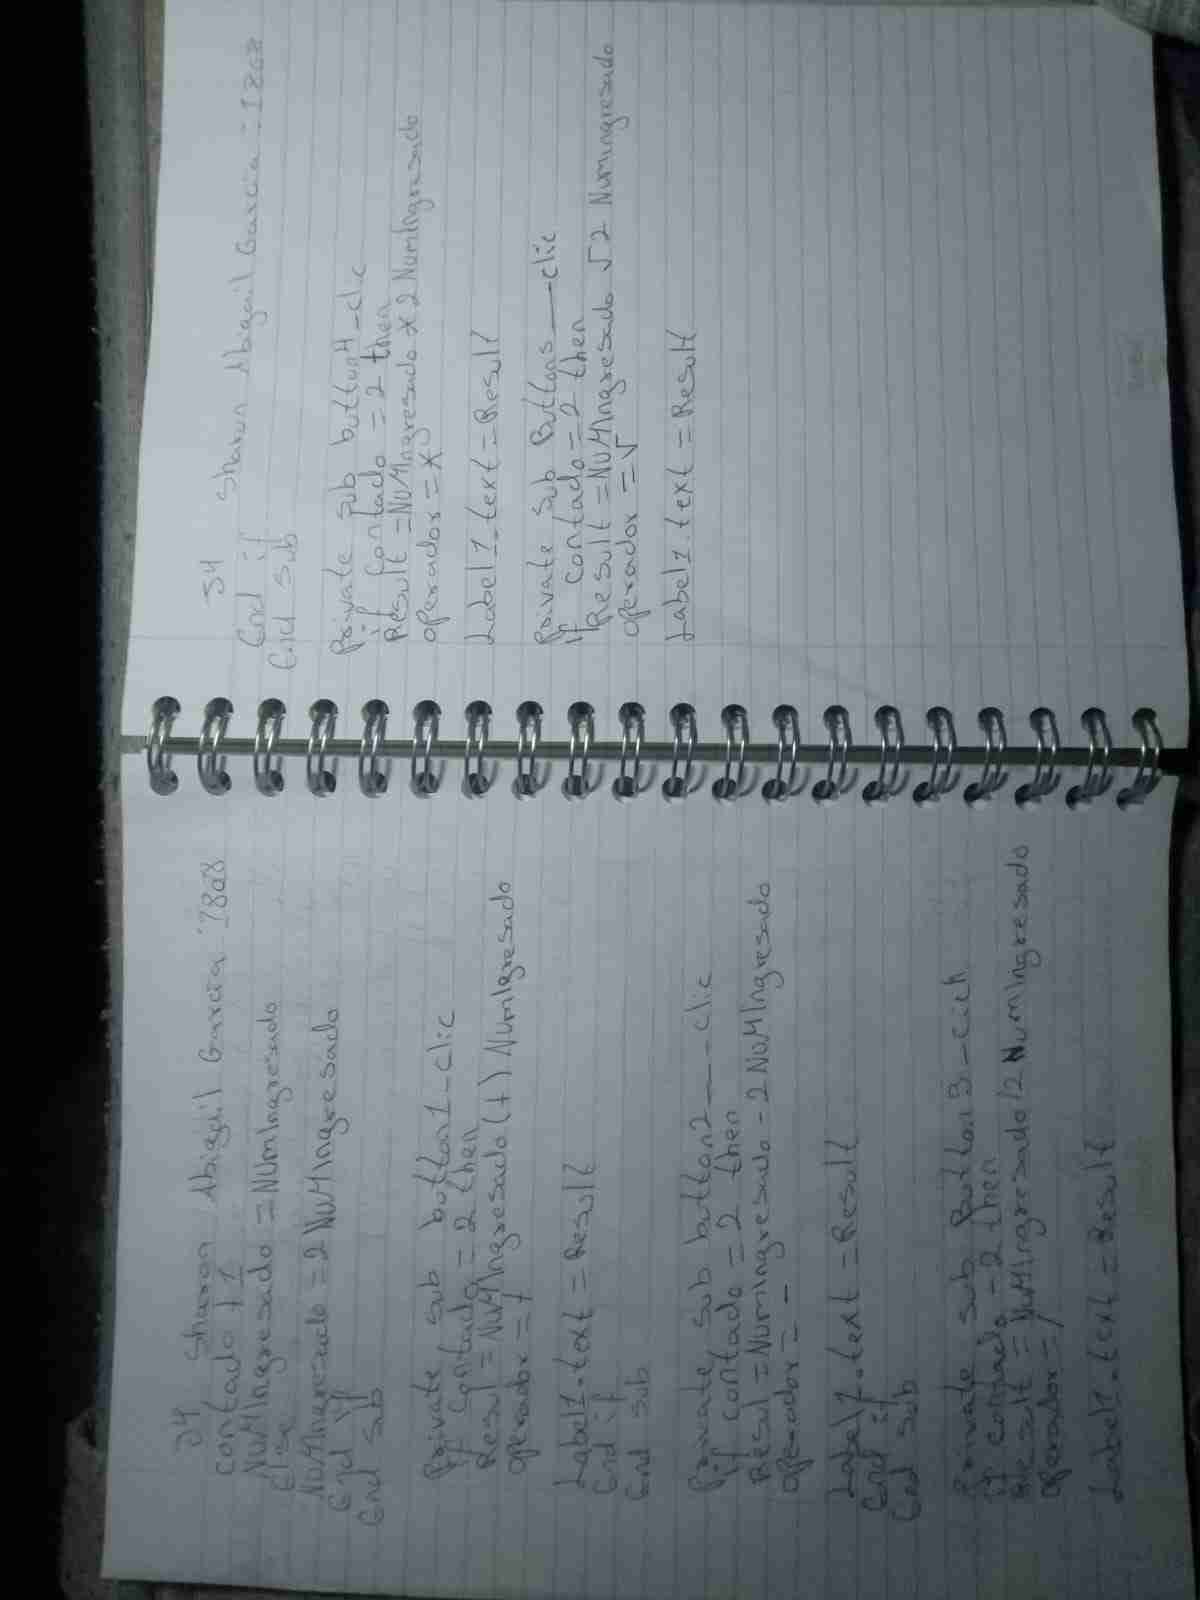 J4 Sharon Abigail Garcia 1808
contado + 1
NuMIngresado = NumIngresado
Else
NuMIngresado = 2 NuMIngresado
End if
End sub
Private sub button1_clic
If contado = 2 then
Resul = NuMIngresado (+) NumIgresado
operador = +
Label1.text = Result
End if
End sub
Private sub button2__clic
if contado = 2 then
Resul = NumIngresado - 2 NuMIngresado
operador = -
Label1.text = Result
End if
End sub
Private sub Button3_Cick
If contado - 2 then
Result = NuMingresado / 2 NumIngresado
operador = /
Label1.text = Result
J4 Sharon Abigail Garcia : 1808
End if
End sub
Private sub button4_clic
if contado = 2 then
Result = NuMIngresado * 2 NumIngresado
operador = *
Label1.text = Result
Private sub Buttons__clic
If contado = 2 then
Result = NuMIngresado √2 NumIngresado
operador = √
Label1.text = Result